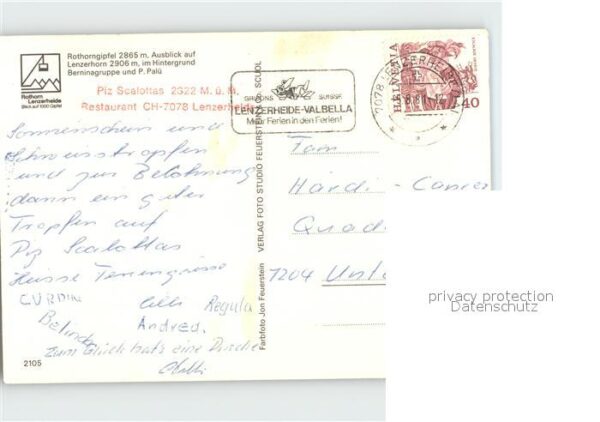 Rothorngipfel 2865 m, Ausblick auf
Lenzerhorn 2906 m, im Hintergrund
Berninagruppe und P. Palü
Rothorn
Lenzerheide
Blick auf 1000 Gipfel
Piz Scalottas 2322 M. ü. M.
Restaurant CH-7078 Lenzerheide
GRISONS SUISSE
LENZERHEIDE-VALBELLA
Mehr Ferien in den Ferien!
7078 LENZERHEIDE
HELVETIA
40
Sonnenschein und
Schweisstropfen
und zur Belohnung
dann ein guter
Tropfen auf
Piz Scalottas
Heisse Tennisgrüsse
CURDIN
Regula
Belinda
Andrea
zum Glück hat's eine Dusche
2105
Farbfoto Jon Feuerstein VERLAG FOTO STUDIO FEUERSTEIN SCUOL
Fam
Hardi - 
7204 Unt
privacy protection
Datenschutz